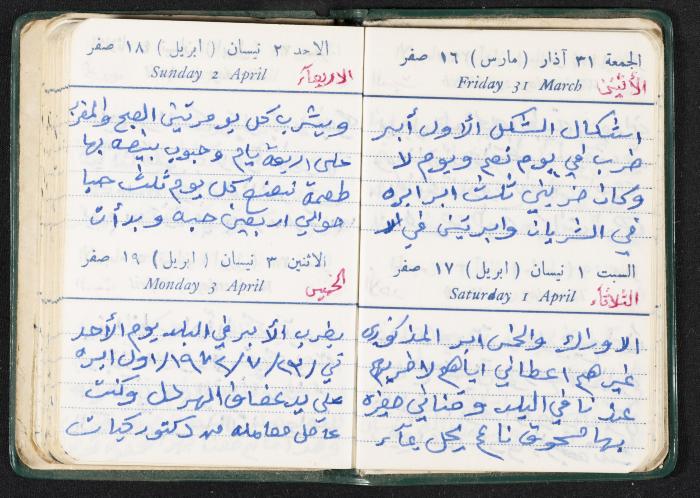 الجمعة ٣١ آذار (مارس) ١٦ صفر
Friday 31 March
الأثنين
اشكال الشكل الأول أبر
ضرب في يوم نعم ويوم لا
وكان ضربني ثلث ابر ابره
في الشريان وابرتين في الا
السبت ١ نيسان (ابريل) ١٧ صفر
Saturday 1 April
الثلاثاء
الاوراك والخمس ابر المذكوره
غيرهم اعطاني اياهم لاضربهم
عندنا في البلد و قناني صغيره
بها مسحوق ناعم يحل بماء
الاحد ٢ نيسان (ابريل) ١٨ صفر
Sunday 2 April
الاربعاء
ويشرب كل يوم مرتين الصبح والمغرب
على اربعة ايام وحبوب بيضه بها
طعمة نعنع كل يوم ثلث حبا
حوالي اربعين حبه وبدأت
الاثنين ٣ نيسان (ابريل) ١٩ صفر
Monday 3 April
الخميس
بضرب الأبر في البلد يوم الأحد
في ٢٣/٧/١٩٧٢ اول ابره
على يد عفاف الهرحل وكنت
عامل معامله من دكتور كيات